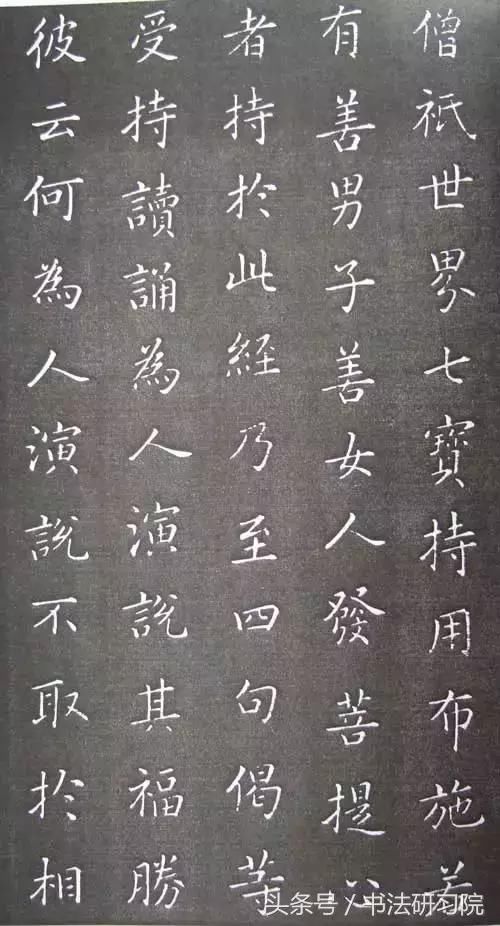 僧祇世界七寶持用布施若
有善男子善女人發菩提心
者持於此經乃至四句偈等
受持讀誦為人演說其福勝
彼云何為人演說不取於相
头条号／书法研习院